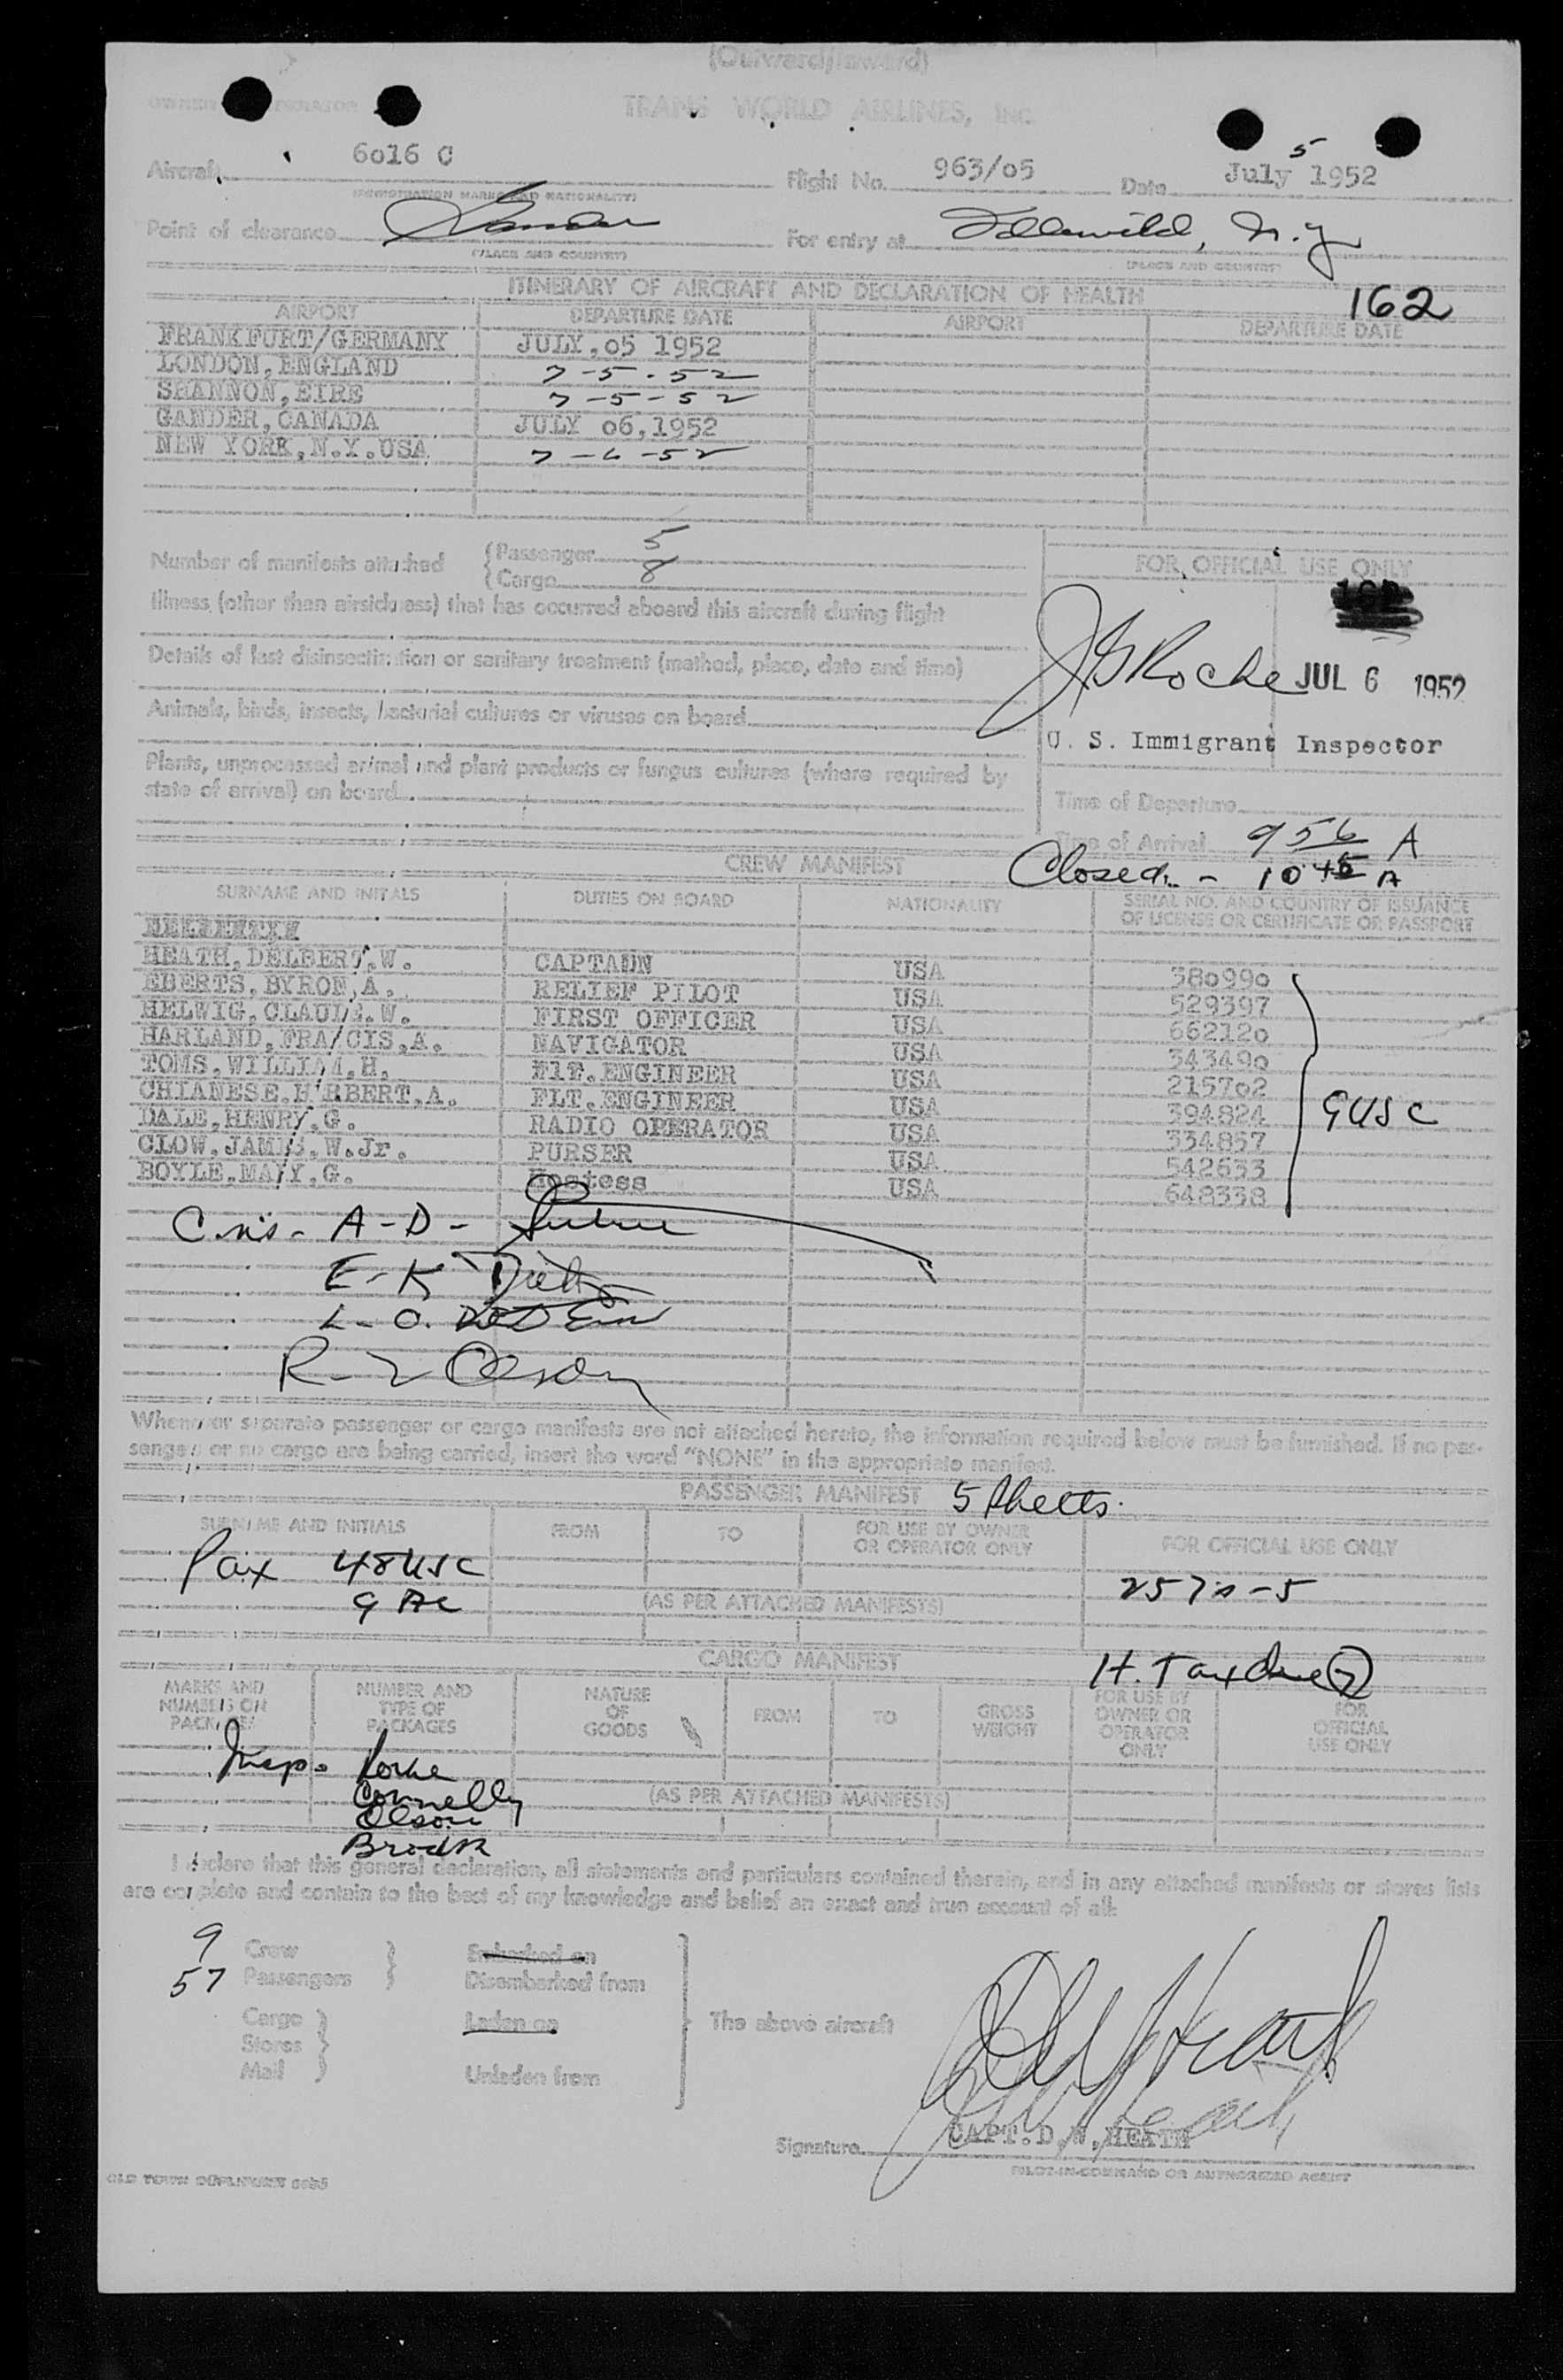 (Outward/Inward)
OWNER OPERATOR TRANS WORLD AIRLINES, INC.
5
Aircraft 6016 C Flight No. 963/05 Date July 1952
(REGISTRATION MARKS AND NATIONALITY)
Point of clearance Gander For entry at Idlewild, N.Y
(PLACE AND COUNTRY) (PLACE AND COUNTRY)
ITINERARY OF AIRCRAFT AND DECLARATION OF HEALTH 162
AIRPORT DEPARTURE DATE AIRPORT DEPARTURE DATE
FRANKFURT/GERMANY JULY.05 1952
LONDON, ENGLAND 7-5-52
SHANNON, EIRE 7-5-52
GANDER, CANADA JULY 06,1952
NEW YORK, N.Y. USA. 7-6-52
Number of manifests attached
Passenger 5
Cargo 8
FOR OFFICIAL USE ONLY
Illness (other than airsickness) that has occurred aboard this aircraft during flight
Details of last disinsectization or sanitary treatment (method, place, date and time)
JG Roche JUL 6 1952
Animals, birds, insects, bacterial cultures or viruses on board
U. S. Immigrant Inspector
Plants, unprocessed animal and plant products or fungus cultures (where required by
state of arrival) on board
Time of Departure
Time of Arrival 9 56 A
CREW MANIFEST Closed - 10 45 A
SURNAME AND INITALS DUTIES ON BOARD NATIONALITY SERIAL NO. AND COUNTRY OF ISSUANCE
OF LICENSE OR CERTIFICATE OR PASSPORT
HEATH, DELBERT.W. CAPTAUN USA 380990
EBERTS, BYRON,A. RELIEF PILOT USA 529397
HELWIG, CLAUDE.W. FIRST OFFICER USA 662120
HARLAND, FRA/CIS,A. NAVIGATOR USA 343490
TOMS, WILLIAM.H. FlT.ENGINEER USA 215702
CHIANESE.H RBERT,A. FLT.ENGINEER USA 394824
DALE, HENRY,G. RADIO OPERATOR USA 334857
CLOW. JAMES.W.Jr. PURSER USA 542633
BOYLE.MARY.G. Hostess USA 648338
9 USC
A-D-
E-K
L-O.
R-Z Olson
Whenever separate passenger or cargo manifests are not attached hereto, the information required below must be furnished. If no pas-
sengers or no cargo are being carried, insert the word "NONE" in the appropriate manifest.
PASSENGER MANIFEST 5 Sheets.
SURNAME AND INITIALS FROM TO FOR USE BY OWNER
OR OPERATOR ONLY FOR OFFICIAL USE ONLY
Pax 48 USC
9 (AS PER ATTACHED MANIFESTS)
CARGO MANIFEST H. Tax due 7
MARKS AND
NUMBERS ON
PACKAGES
NUMBER AND
TYPE OF
PACKAGES
NATURE
OF
GOODS
FROM
TO
GROSS
WEIGHT
FOR USE BY
OWNER OR
OPERATOR
ONLY
FOR
OFFICIAL
USE ONLY
Insp. Roche
Connelly
Olson
(AS PER ATTACHED MANIFESTS)
I declare that this general declaration, all statements and particulars contained therein, and in any attached manifests or stores lists
are complete and contain to the best of my knowledge and belief an exact and true account of all:
9 Crew Embarked on
57 Passengers Disembarked from
Cargo Laden on The above aircraft
Stores
Mail Unladen from
Signature CAPT. D,W,HEATH
PILOT-IN-COMMAND OR AUTHORIZED AGENT